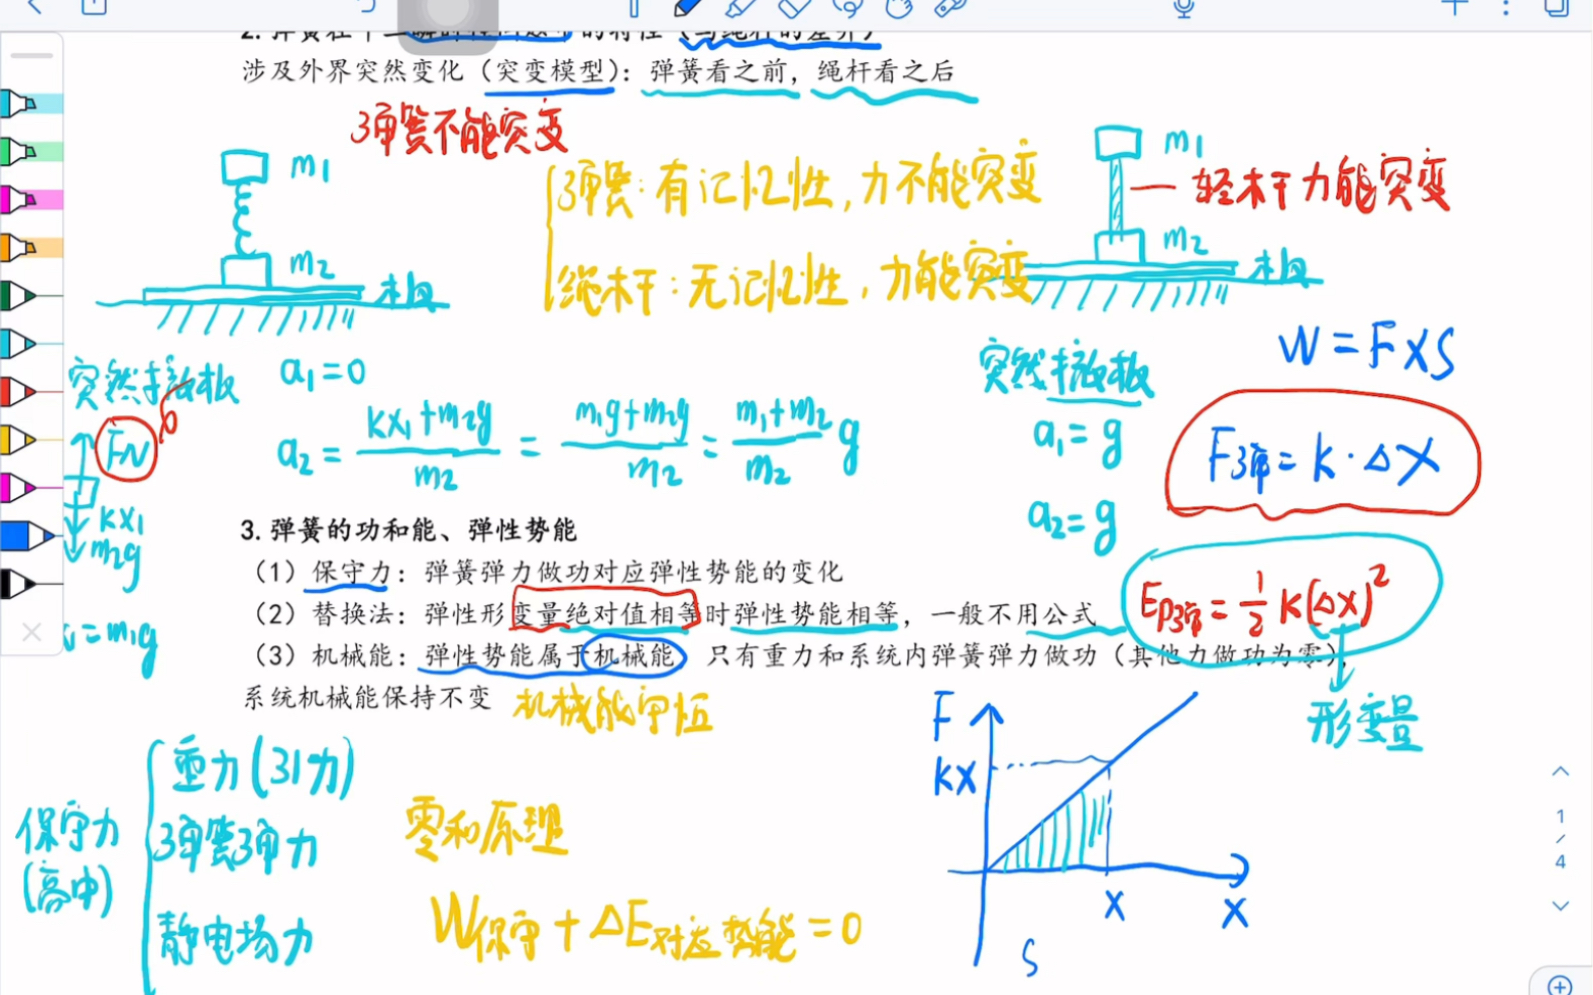 2. 弹簧在牛二瞬时性问题中的特性（与绳杆的差异）
涉及外界突然变化（突变模型）：弹簧看之前，绳杆看之后
弹簧不能突变
m₁
m₂
板
弹簧：有记忆性，力不能突变
绳杆：无记忆性，力能突变
m₁
轻杆力能突变
m₂
板
突然撤板
a₁=0
a₂ = (kx₁+m₂g)/m₂ = (m₁g+m₂g)/m₂ = (m₁+m₂)/m₂ g
FN
0
kx₁
m₂g
₁=m₁g
突然撤板
a₁=g
a₂=g
W=F×S
F弹=k·Δx
3. 弹簧的功和能、弹性势能
（1）保守力：弹簧弹力做功对应弹性势能的变化
（2）替换法：弹性形变量绝对值相等时弹性势能相等，一般不用公式
Ep弹=½k(Δx)²
（3）机械能：弹性势能属于机械能 只有重力和系统内弹簧弹力做功（其他力做功为零），
系统机械能保持不变
机械能守恒
形变量
保守力
(高中)
重力(引力)
弹簧弹力
静电场力
零和原理
W保守+ΔE对应势能=0
F
kx
x
x
S
1
/
4